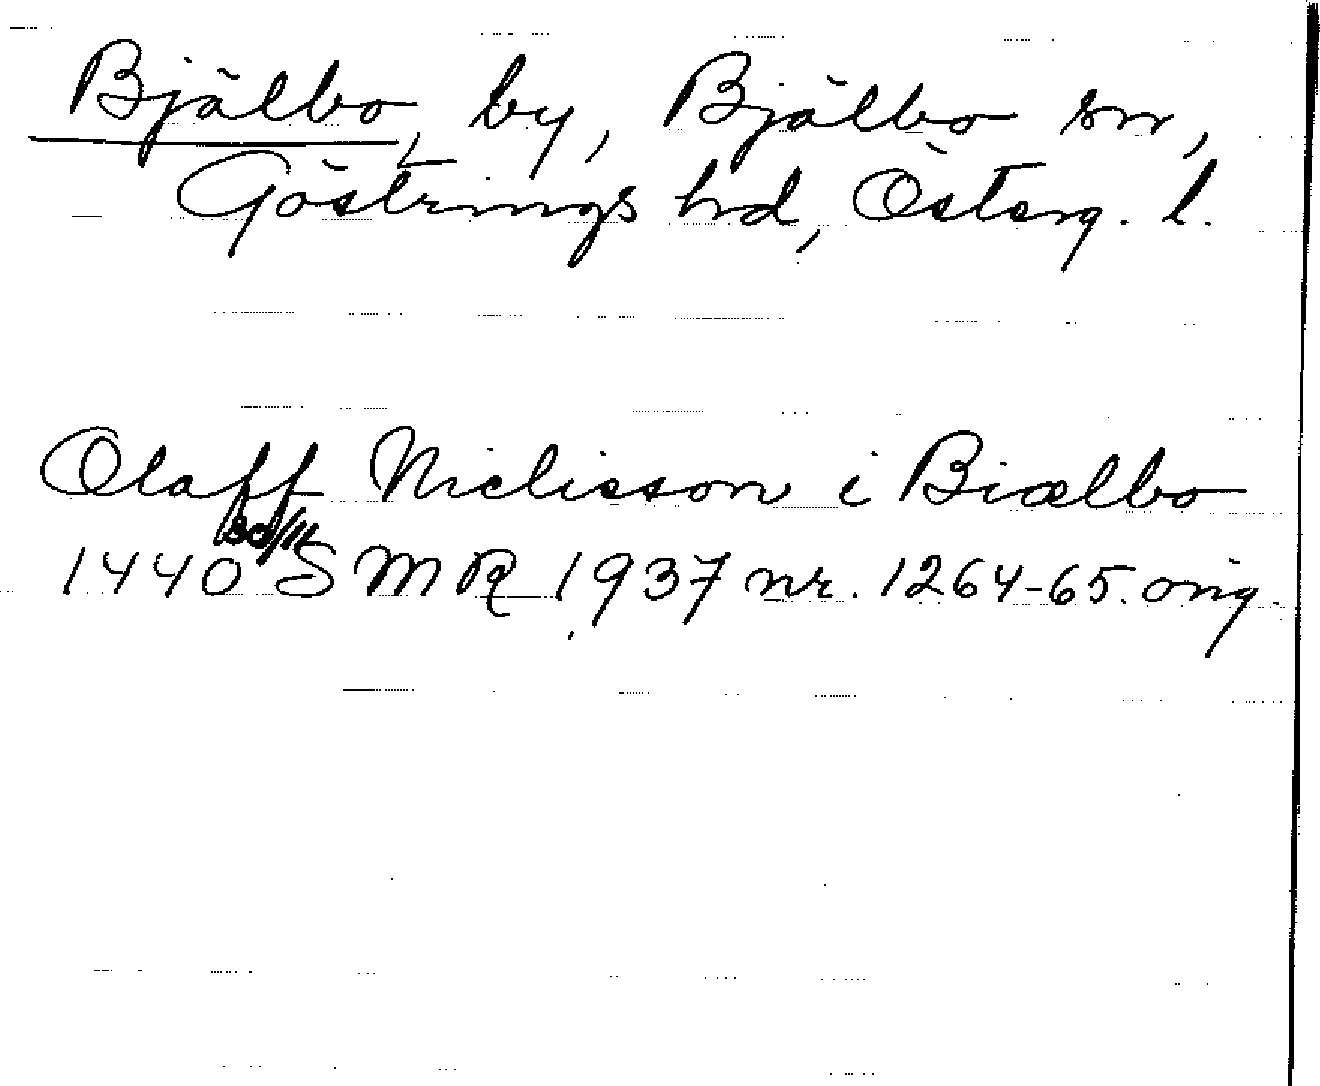 Bjälbo, by, Bjälbo sn,
Göstrings hrd, Österg. l.
Olaff Niclisson i Biælbo
1440 SMR 1937 nr. 1264-65. orig.